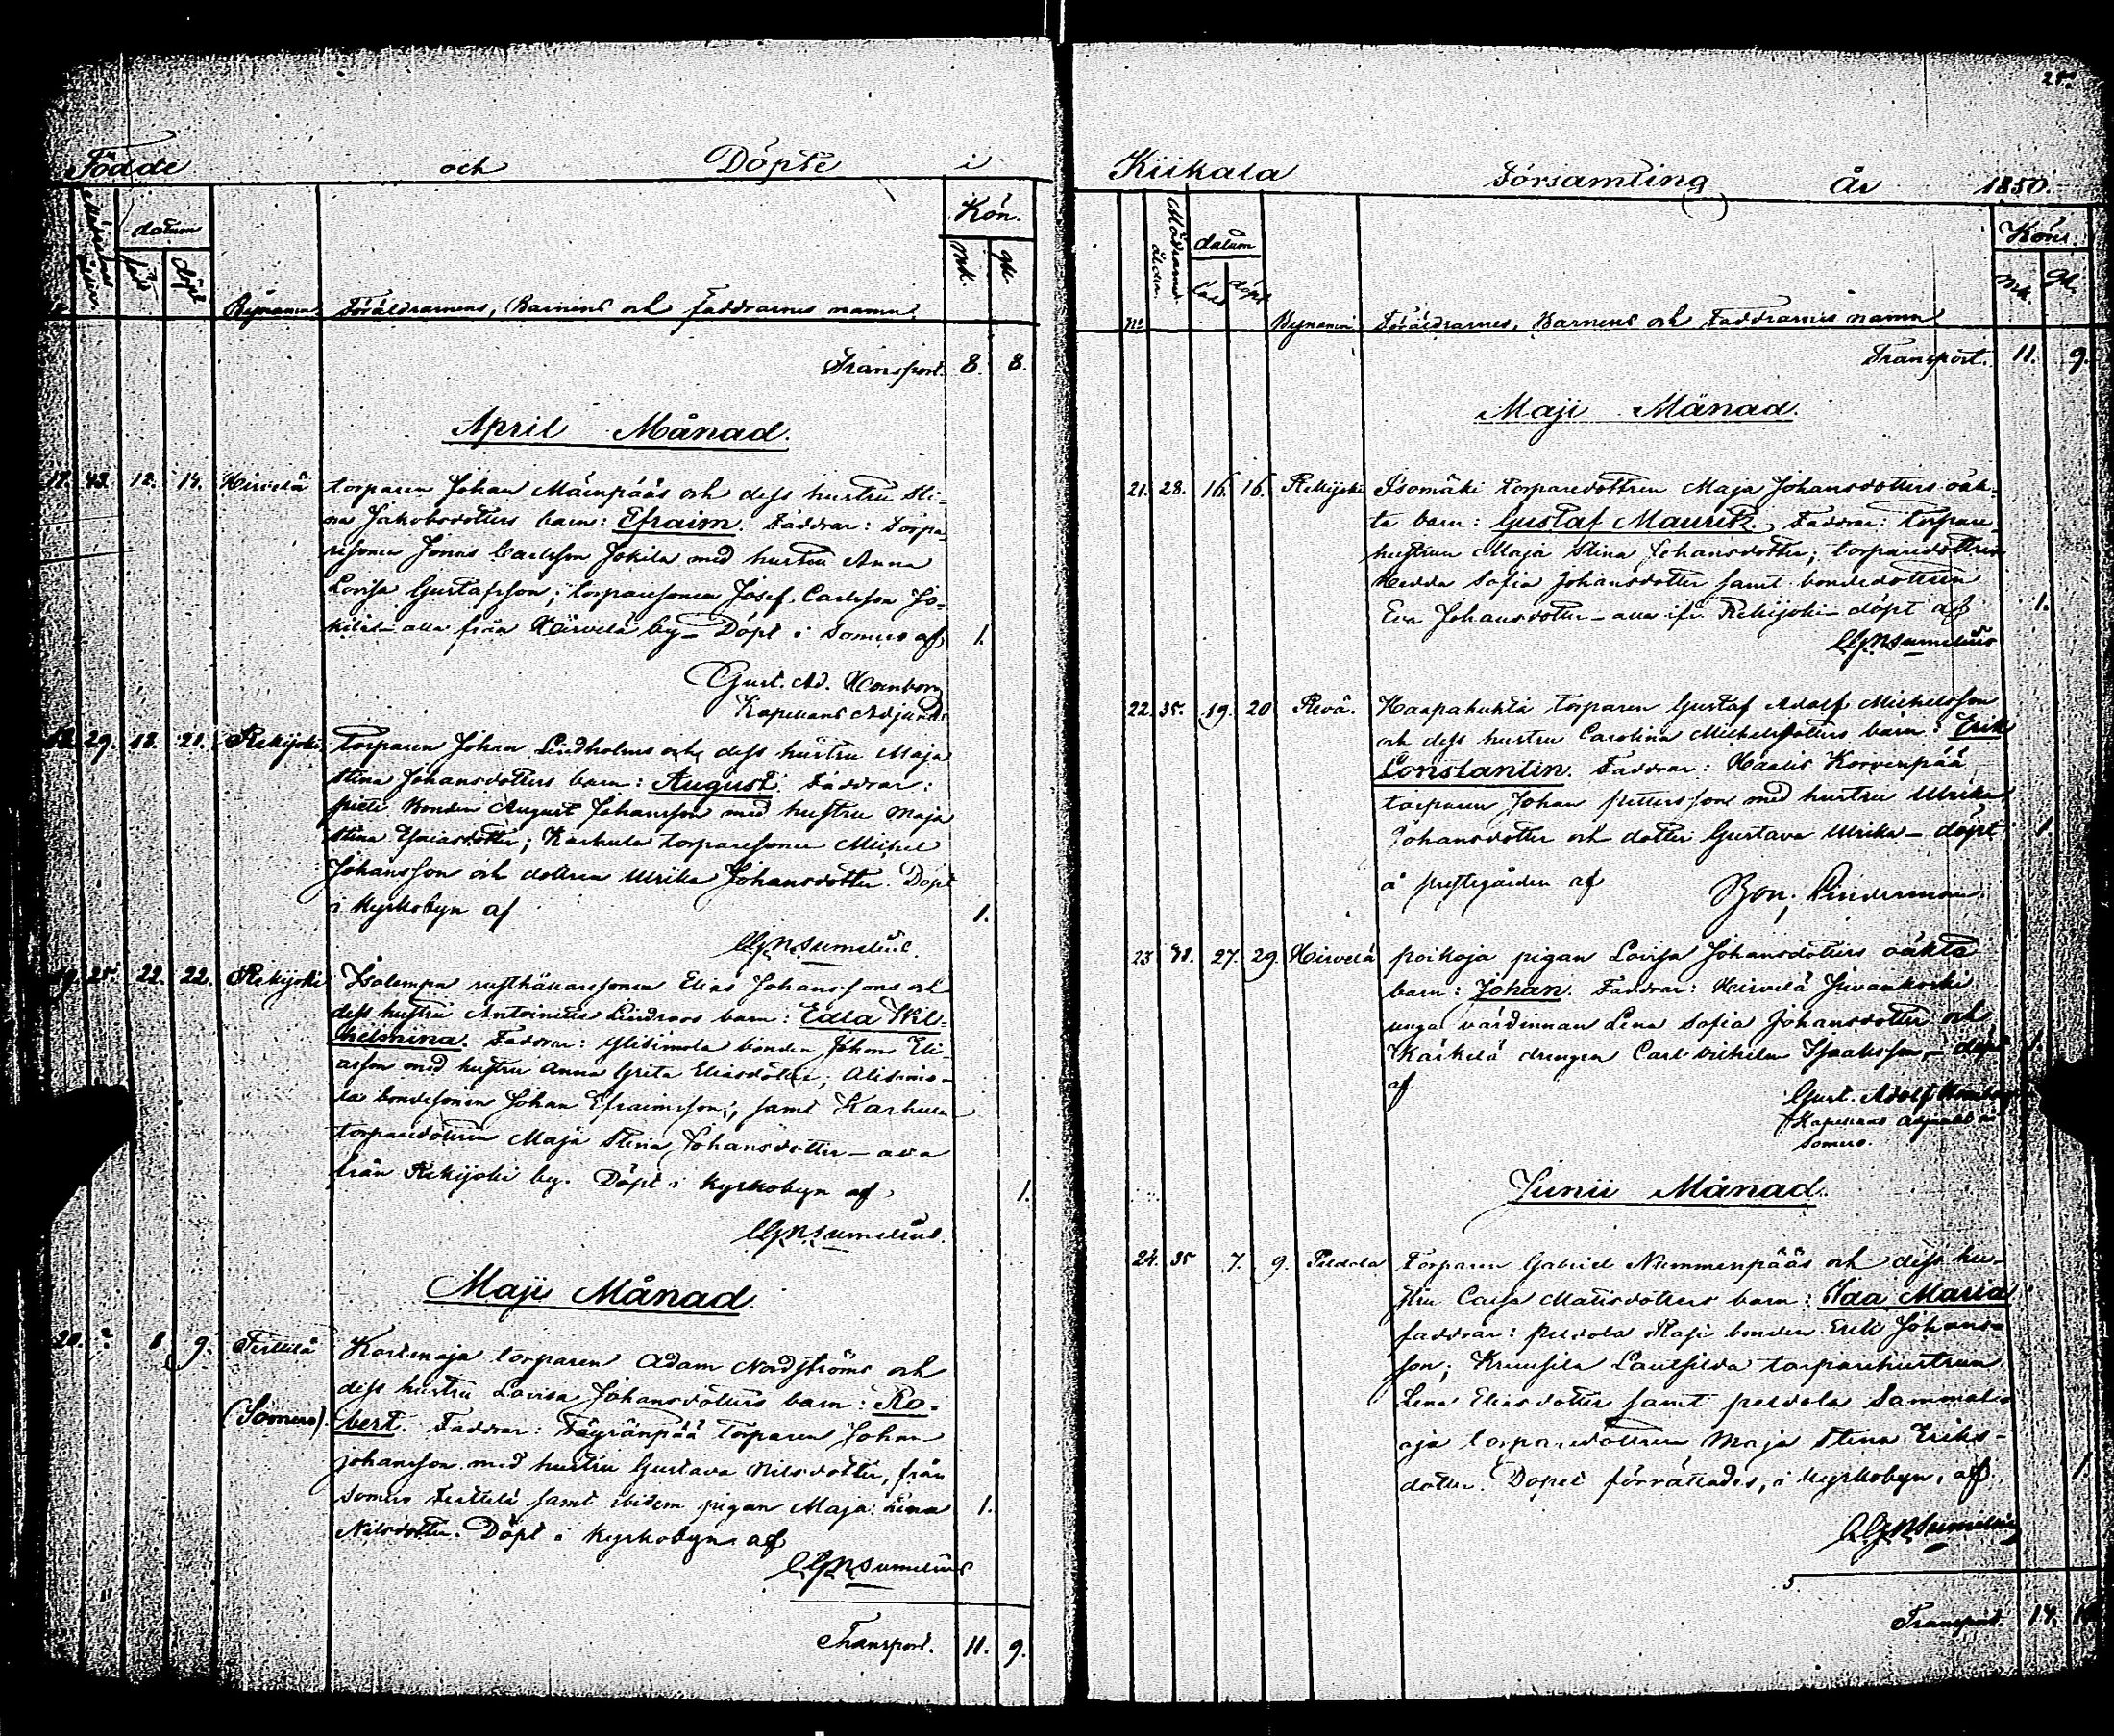 Födde och Döpte i
Moderns ålder datum Kön.
född döpt Mk. qk
Bynamn Föräldrarnes, Barnens och Faddrarnes namn
Transport. 8. 8.
April Månad.
17. 43. 12. 14. Hirvelä torparen Johan Mäenpääs och dess hustru Sti-
na Jakobsdotters barn: Efraim. Faddrar: Torpa-
resonen Jonas Carlsson Jokila med hustru Anna
Lovisa Gustafsson; torparesonen Josef Carlsson Jo-
kila - alla från Hirvelä by - Döpt i Somero af 1.
Gust. Ad. Hornborg
Kapellans Adjunkt
18. 29. 18. 21. Rekijoki Torparen Johan Lindholms och dess hustru Maja
Stina Johansdotters barn: August. Faddrar:
Bonden August Johansson med hustru Maja
Stina Esaiasdotter; Karhula torparesonen Michel
Johansson och dottren Ulrika Johansdotter. Döpt
i Kyrkobyn af 1.
CGNSumelius.
19. 25. 22. 22. Rekijoki rusthållaresonen Elias Johanssons och
dess hustru Antoinette Lindroos barn: Edla Wil-
helmina. Faddrar: bonden Johan Eli-
asson med hustru Anna Greta Eliasdotter; Alisimo-
la bondesonen Johan Efraimsson; samt Karhula
torparedottren Maja Stina Johansdotter - alla
från Rekijoki by. Döpt i Kyrkobyn af 1.
CGNSumelius.
Maji Månad.
20. ? 8 9. Terttilä torparen Adam Nordströms och
dess hustru Lovisa Johansdotters barn: Ro-
(Somero). bert. Faddrar: Torparen Johan
Johansson med hustru Gustava Nilsdotter, från
Somero Terttilä samt ibidem pigan Maja Lena 1.
Nilsdotter. Döpt i Kyrkobyn af
CGNSumelius
Transport. 11. 9.
25.
Kiikala Församling År 1850.
Mödrarnes ålder. datum Kön.
född döpt Mk. Qk.
No Bynamn Föräldrarnes, Barnens och Faddrarnes namn
Transport. 11. 9.
Maji Månad.
21. 28. 16. 16. Rekijoki Isomäki torparedottren Maja Johansdotters oäk-
ta barn: Gustaf Mauritz. Faddrar: torpare
hustrun Maja Stina Johansdotter; torparedottren
Hedda Sofia Johansdotter samt bondedottren
Eva Johansdotter - alla ifr. Rekijoki - döpt af 1.
CGNSumelius
22. 35. 19. 20 Haapakuhta torparen Gustaf Adolf Michelsson
och dess hustru Carolina Michelsdotters barn: Erik
Constantin. Faddrar: Korvenpää
torparen Johan Pettersson med hustru Ulrika
Johansdotter och dotter Gustava Ulrika - döpt 1.
å prestegården af Bon. Linderman.
23 27. 29. Hirvelä poikoja pigan Lovisa Johansdotters oäkta
barn: Johan. Faddrar: Hirvelä
unga värdinnan Lena Sofia Johansdotter och
Kärkelä drengen Carl Vilhelm Isaksson, - döpt 1.
af
Gust. Adolf Hornborg
Kapellans adjunkt i
Somero.
Junii Månad.
24. 35 7. 9. Peldola Torparen Gabriel Nummenpääs och dess hu-
stru Caisa Matisdotters barn: Ida Maria
faddrar: Peldola Rasi bonden Erik Johans-
son; Kruusila torparehustrun
Lena Eliasdotter samt Peldola Sammals-
oja torparedottren Maja Stina Eriks-
dotter. Dopet förrättades, i Kyrkobyn, af. 1.
CGNSumelius
Transport. 14. 10